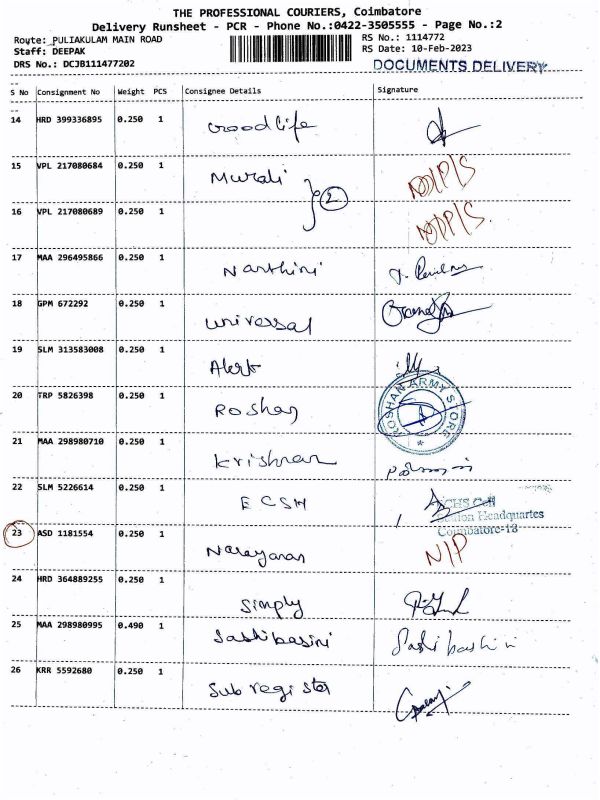 THE PROFESSIONAL COURIERS, Coimbatore
Delivery Runsheet - PCR - Phone No.:0422-3505555 - Page No.:2
Route: PULIAKULAM MAIN ROAD RS No.: 1114772
Staff: DEEPAK RS Date: 10-Feb-2023
DRS No.: DCJB111477202 DOCUMENTS DELIVERY
S No Consignment No Weight PCS Consignee Details Signature
14 HRD 399336895 0.250 1 Good life
15 VPL 217080684 0.250 1 Murali N/D/P/S
2
16 VPL 217080689 0.250 1 N/D/P/S
17 MAA 296495866 0.250 1 Narthini
18 GPM 672292 0.250 1 universal
19 SLM 313583008 0.250 1 Alert
20 TRP 5826398 0.250 1 Roshan ROSHAN ARMY STORE
21 MAA 298980710 0.250 1 Krishnan
22 SLM 5226614 0.250 1 ECSH
CHS Cell
Station Headquartes
Coimbatore-18
23 ASD 1181554 0.250 1 Narayanan N/P
24 HRD 364889255 0.250 1 Simply
25 MAA 298980995 0.490 1 Sashibasini Sashibashini
26 KRR 5592680 0.250 1 Sub register